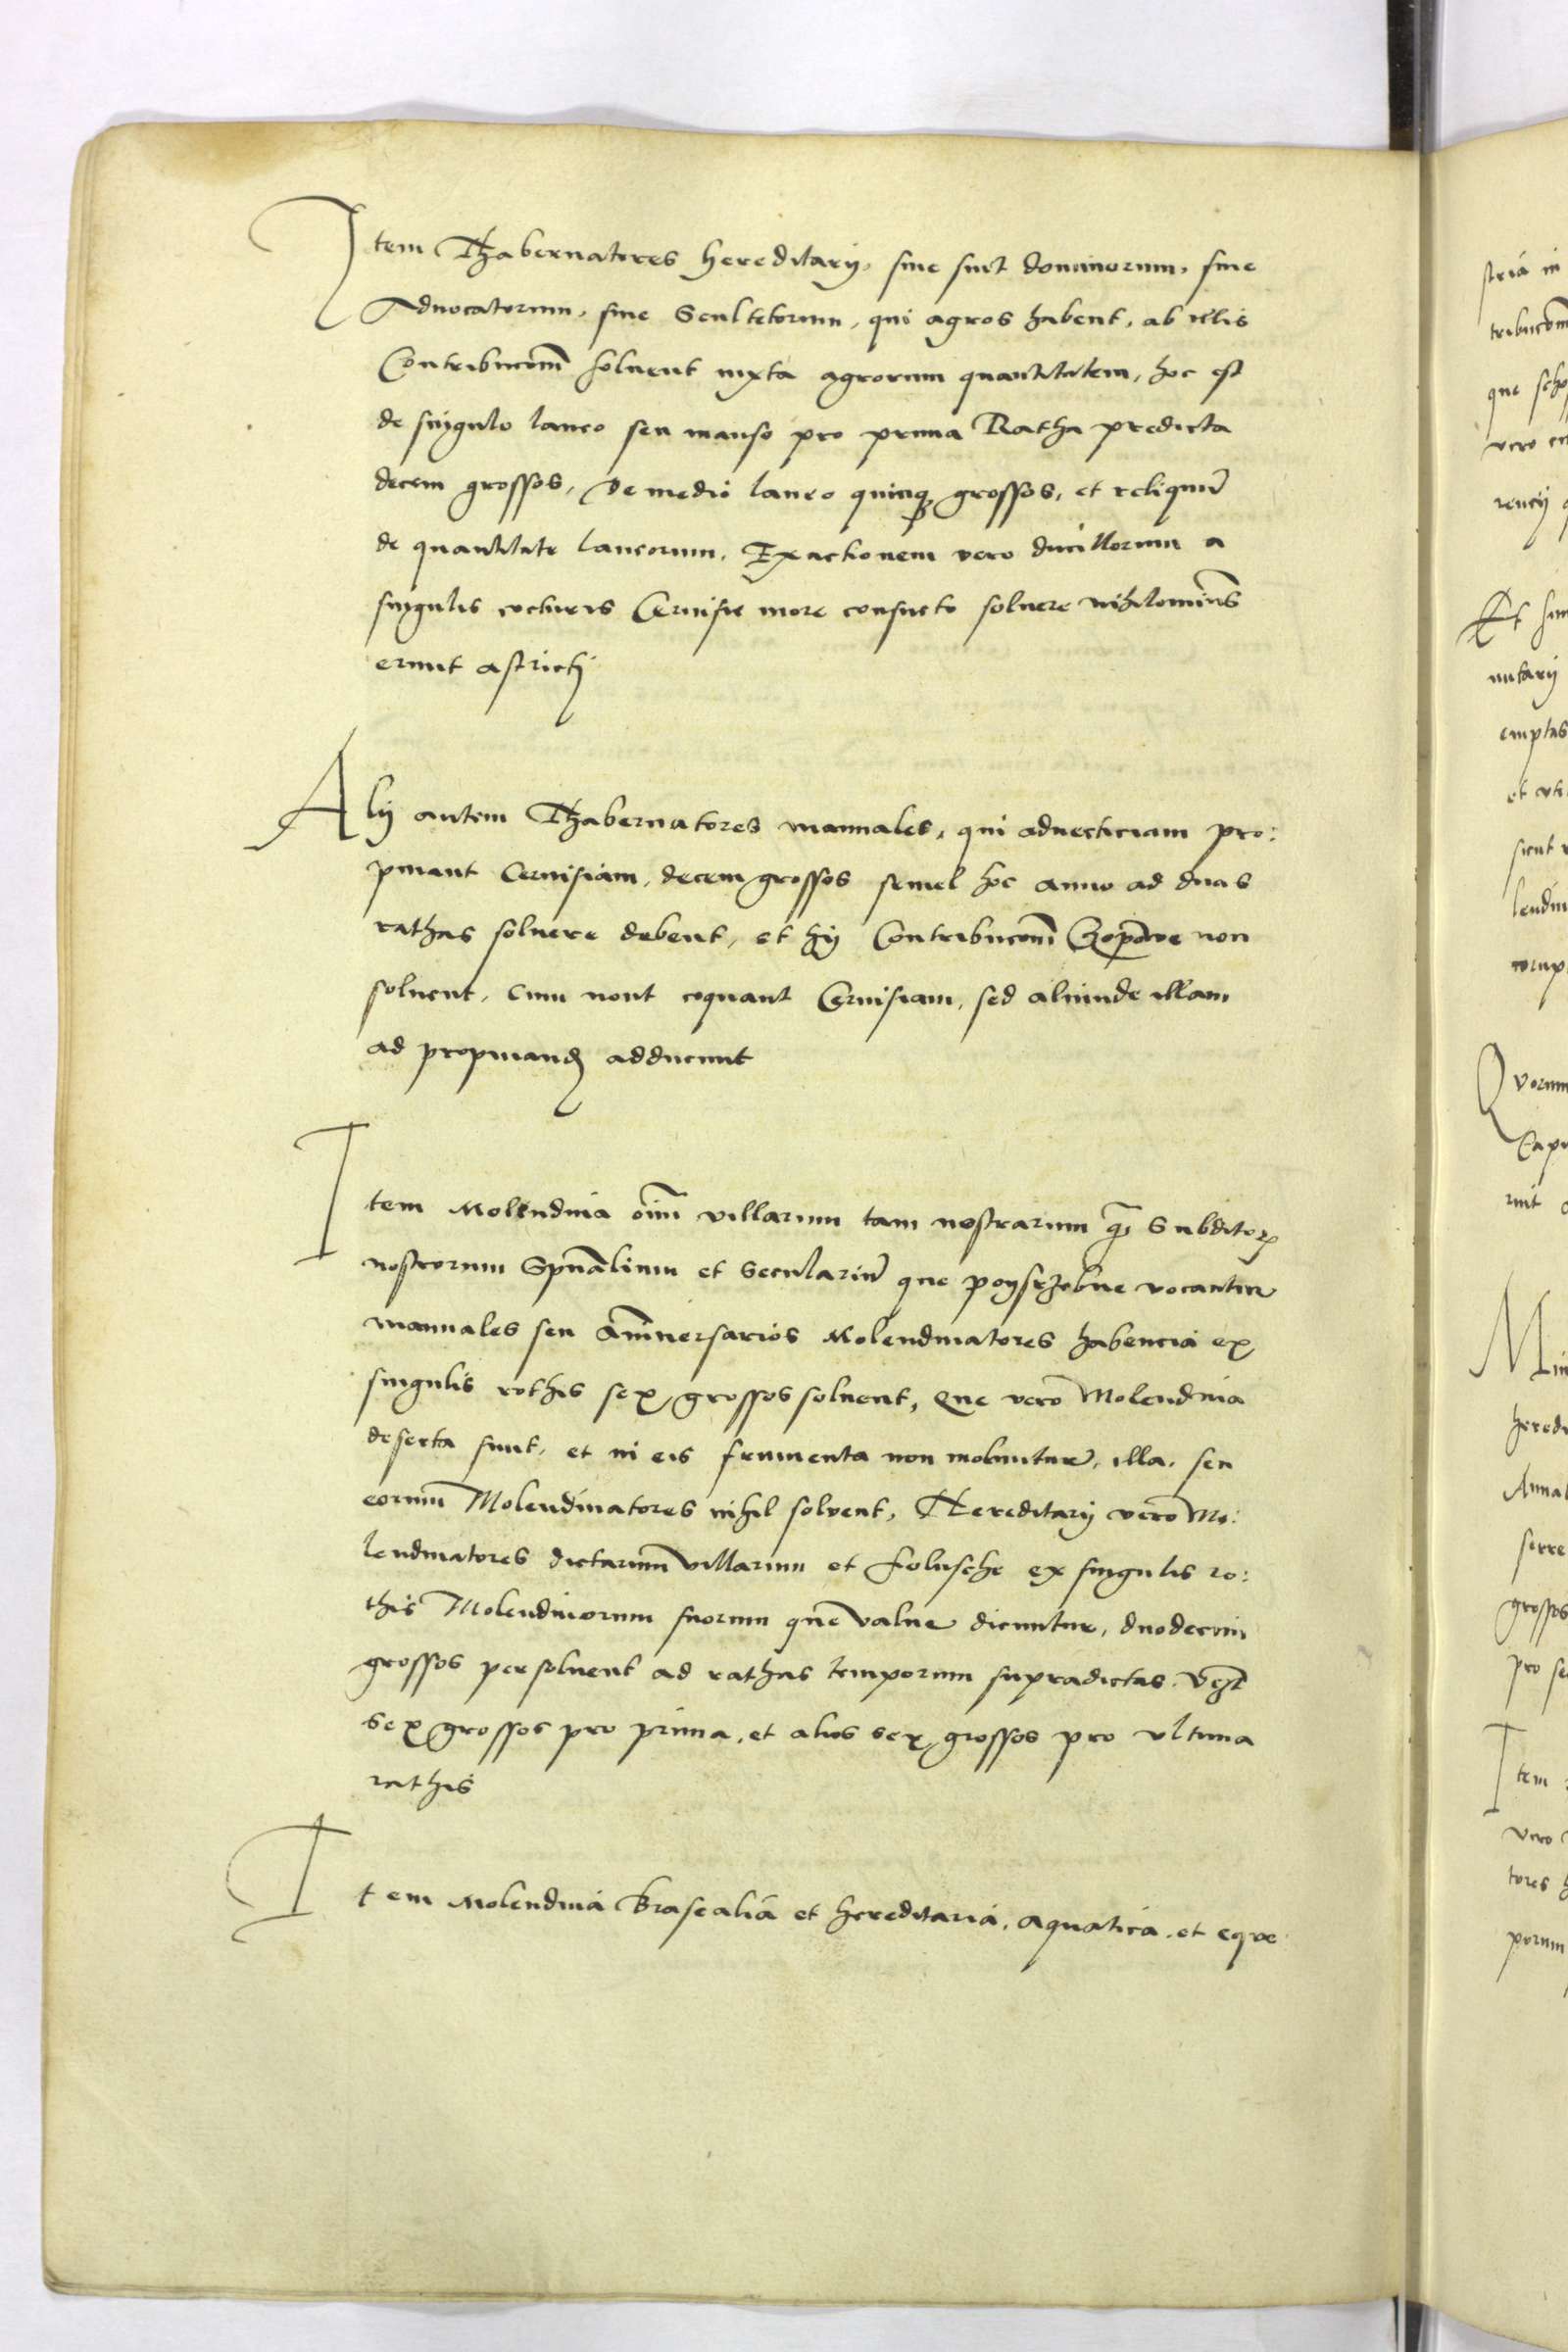 Item Thabernatores hereditarij, siue sint dominorum, siue
Aduocatorum, siue Scultetorum, qui agros habent, ab illis
Contribucōm soluent iuxta agrorum quantitatem, hoc est
de singulo laneo seu manso pro prima Ratha predicta
decem grossos, de medio laneo quinqȝ grossos, et reliquū
de quantitate laneorum. Exactionem vero ducillorum a
singulis cocturis Ceruisie more consueto soluere nihilominꝰ
erunt astricti
Alij autem Thabernatores manuales, qui aduecticiam pro:
pinant Ceruisiam, decem grossos semel hoc anno ad duas
rathas soluere debent, et hij Contribucōm Czopowe non
soluent, Cum nont coquant Ceruisiam, sed aliunde illam
ad propinand adducunt
Item Molendina oīm villarum tam nostrarum q̄ Subditoꝝ
nostrorum Spūalium et Seculariū que poyszobne vocantur
manuales seu Anniuersarios Molendinatores habencia ex
singulis rothis sex grossos soluent, Que vero Molendina
deserta sunt, et in eis frumenta non moluntur, illa, seu
eorum Molendinatores nihil solvent, Hereditarij vero Mo:
lendinatores dictarum villarum et folusche ex singulis ro:
this Molendinorum suorum que valne dicuntur, duodecim
grossos persoluent ad rathas temporum supradictas. Vcȝt
sex grossos pro prima, et alios sex grossos pro vltima
rathis
Item Molendina Brasealia et hereditaria, aquatica, et eque